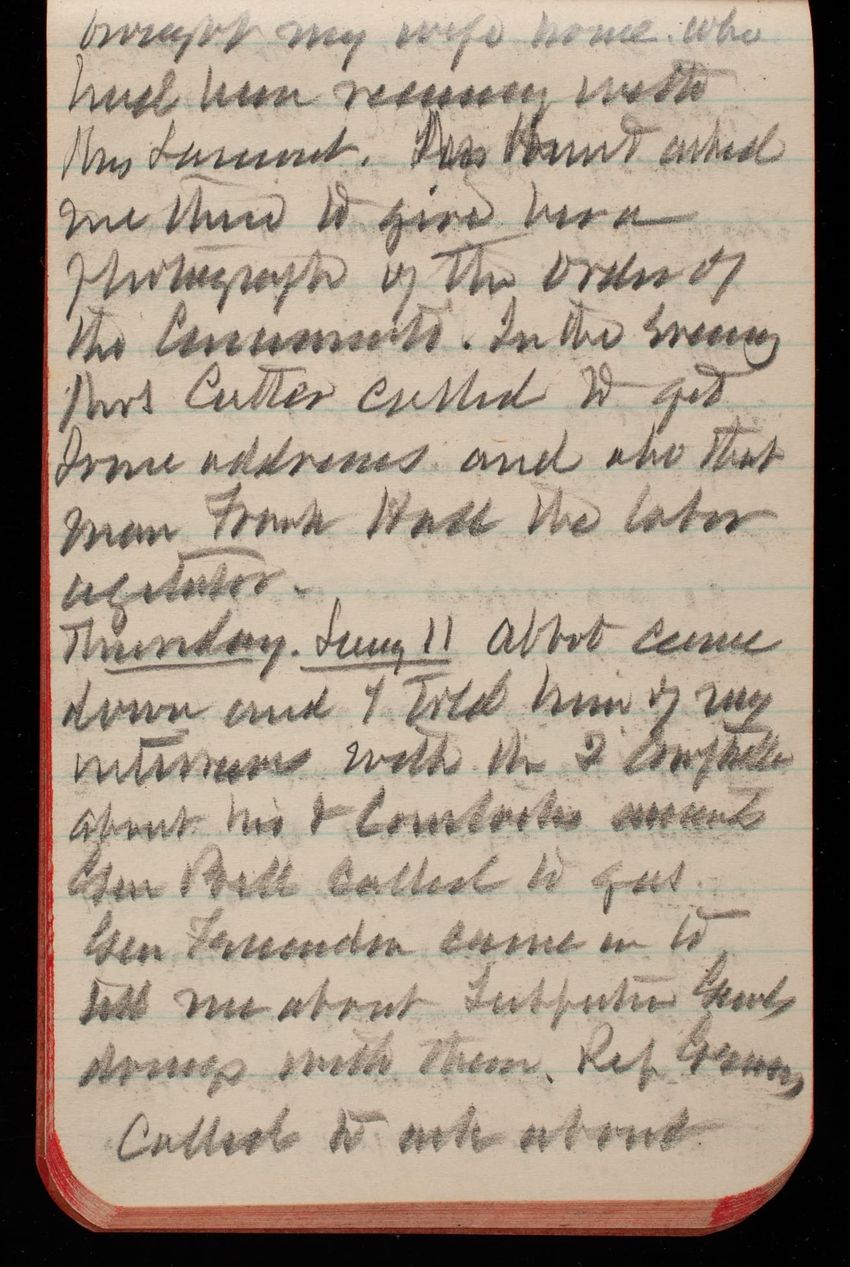 brought my wife home who
had been receiving with
Mrs Lamont. Mrs Hunt asked
me there to give her a
photograph of the order of
the Cincinnati. In the Evening
Mrs Cutter called to get
Some addresses and also that
man Frank Hall the labor
agitator.
Thursday. Jany 11 Abbot came
down and I told him of my
interviews with the 2 Compt
about his & Comstocks accounts
Gen Bell called to gas
Gen came in to
tell me about Genl
doings with them. Rep
Called to ask about